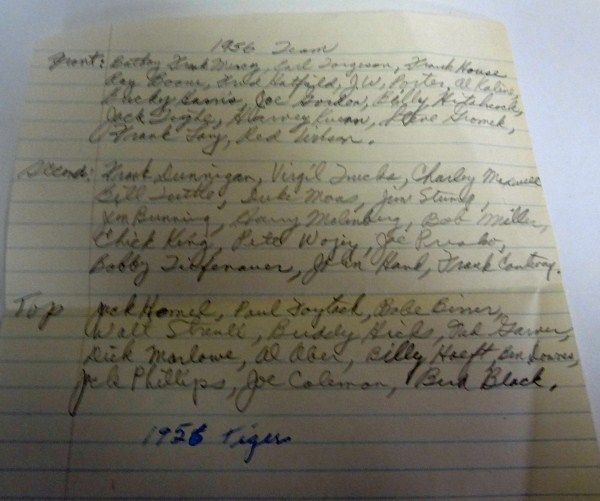 1956 Team
Front: Batboy Frank Mercy, Earl Torgeson, Frank House
Ray Boone, Fred Hatfield, J.W. Porter, Al Kaline,
Bucky Harris, Joe Gordon, Billy Hitchcock,
Jack Tighe, Harvey Kuenn, Steve Gromek,
Frank Lary, Red Wilson.
Second: Frank Dunnigan, Virgil Trucks, Charley Maxwell
Bill Tuttle, Duke Maas, Jim Stump,
Jim Bunning, Harry Malmberg, Bob Miller,
Chick King, Pete Wojey, Joe
Bobby Tiefenauer, John Hand, Frank
Top Jack Homel, Paul Foytack, Babe Birrer,
Walt Streuli, Buddy Hicks, Ned Garver,
Dick Marlowe, Al Aber, Billy Hoeft, Ben Downs,
Jack Phillips, Joe Coleman, Bud Black.
1956 Tigers